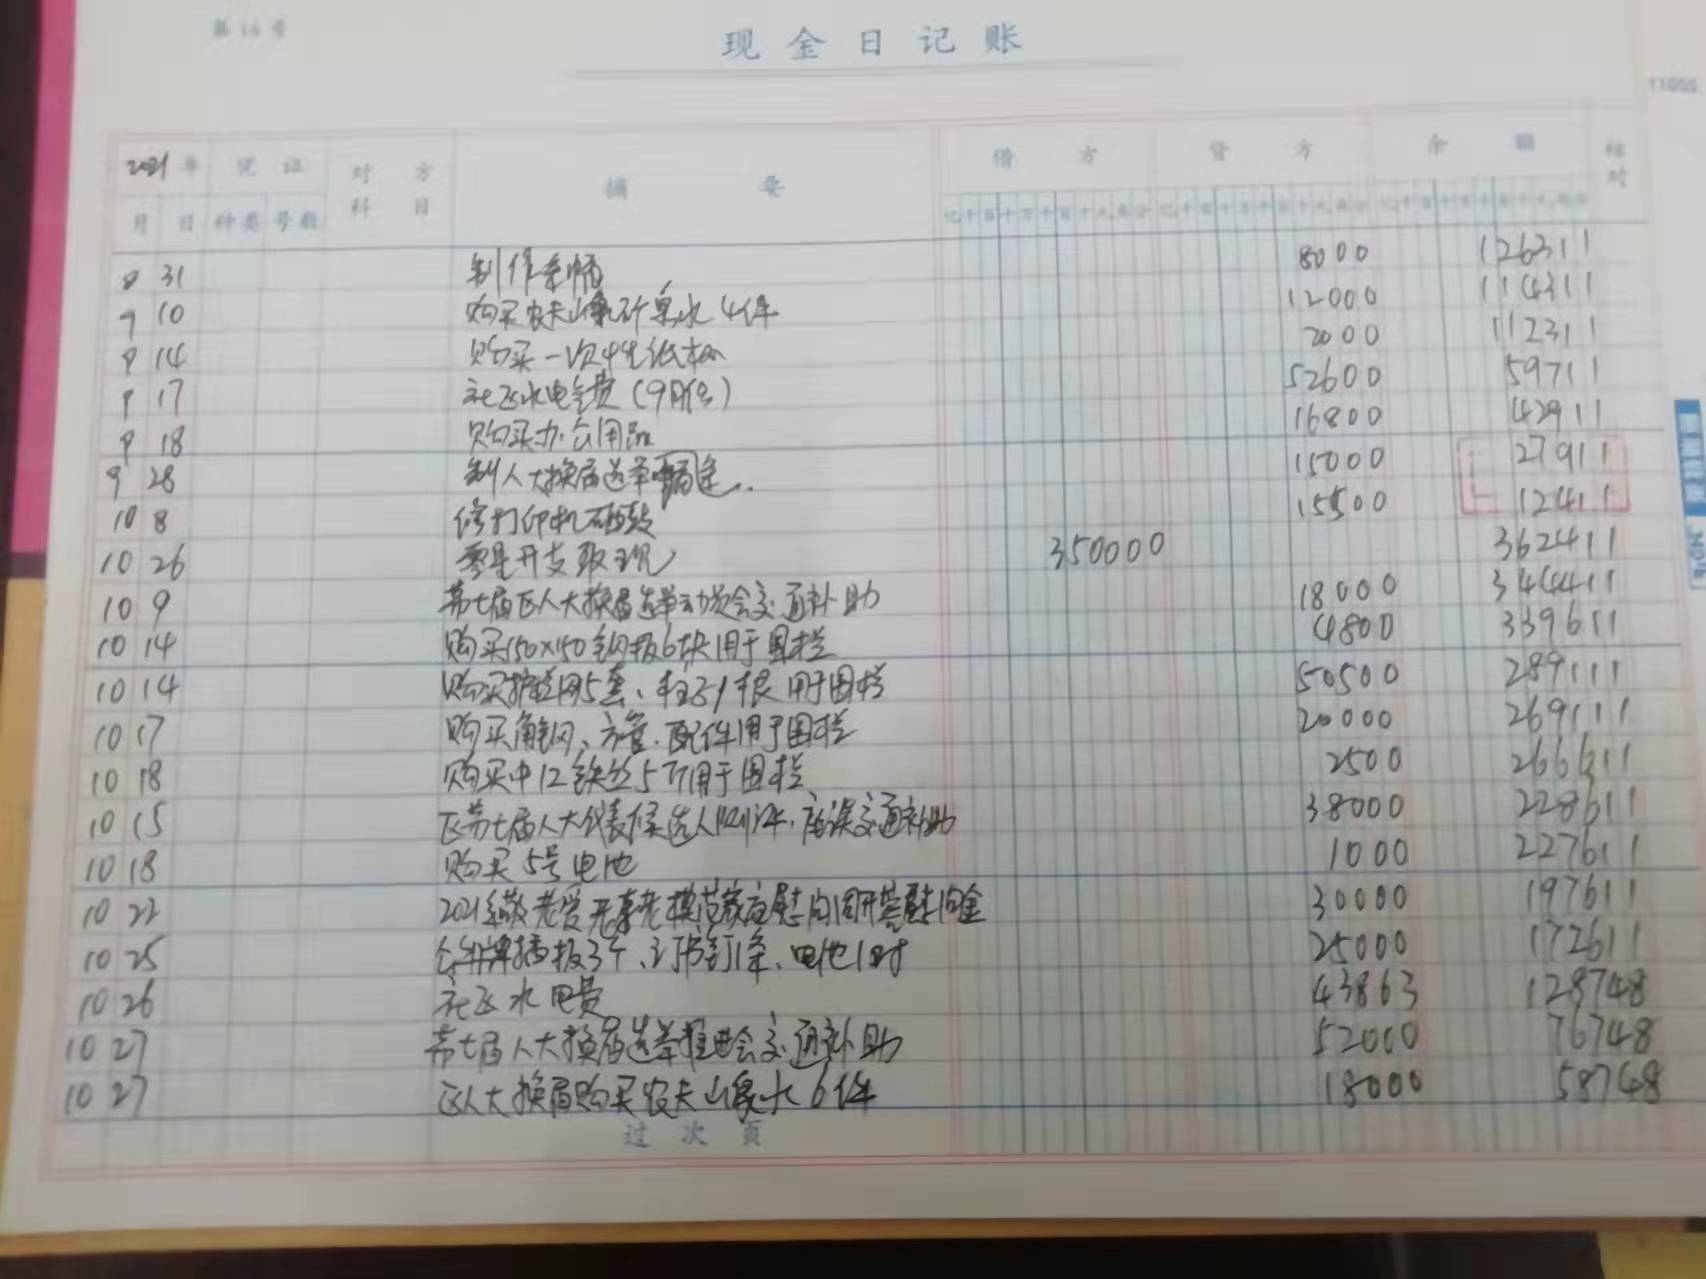 第 16 号
现 金 日 记 账
11055
2021 年 凭 证 对 方 科 目 摘 要 借 方 贷 方 余 额 核对
月 日 种类 号数 亿千百十万千百十元角分 亿千百十万千百十元角分 亿千百十万千百十元角分
8 31 制作条幅 8000 126311
9 10 购买农夫山泉矿泉水4件 12000 114311
9 14 购买一次性纸杯 2000 112311
9 17 社区水电气费(9月份) 52600 59711
9 18 购买办公用品 16800 42911
9 28 制人大换届选举 15000 27911
10 8 修打印机硒鼓 15500 12411
10 26 零星开支取现 350000 362411
10 9 第七届区人大换届选举动员会交通补助 18000 344411
10 14 购买150×150钢板6块用于围栏 4800 339611
10 14 购买护栏网5套、柱子9根用于围栏 50500 289111
10 17 购买角钢、方管、配件用于围栏 20000 269111
10 18 购买中12铁丝5斤用于围栏 2500 266611
10 15 区第七届人大代表候选人 座谈交通补助 38000 228611
10 18 购买5号电池 1000 227611
10 22 2021年敬老爱老孝老模范家庭慰问 慰问金 30000 197611
10 25 公牛牌插板3个、订书钉1条、电池1对 25000 172611
10 26 社区水电费 43863 128748
10 27 第七届人大换届选举推进会交通补助 52000 76748
10 27 区人大换届购买农夫山泉水6件 18000 58748
过 次 页